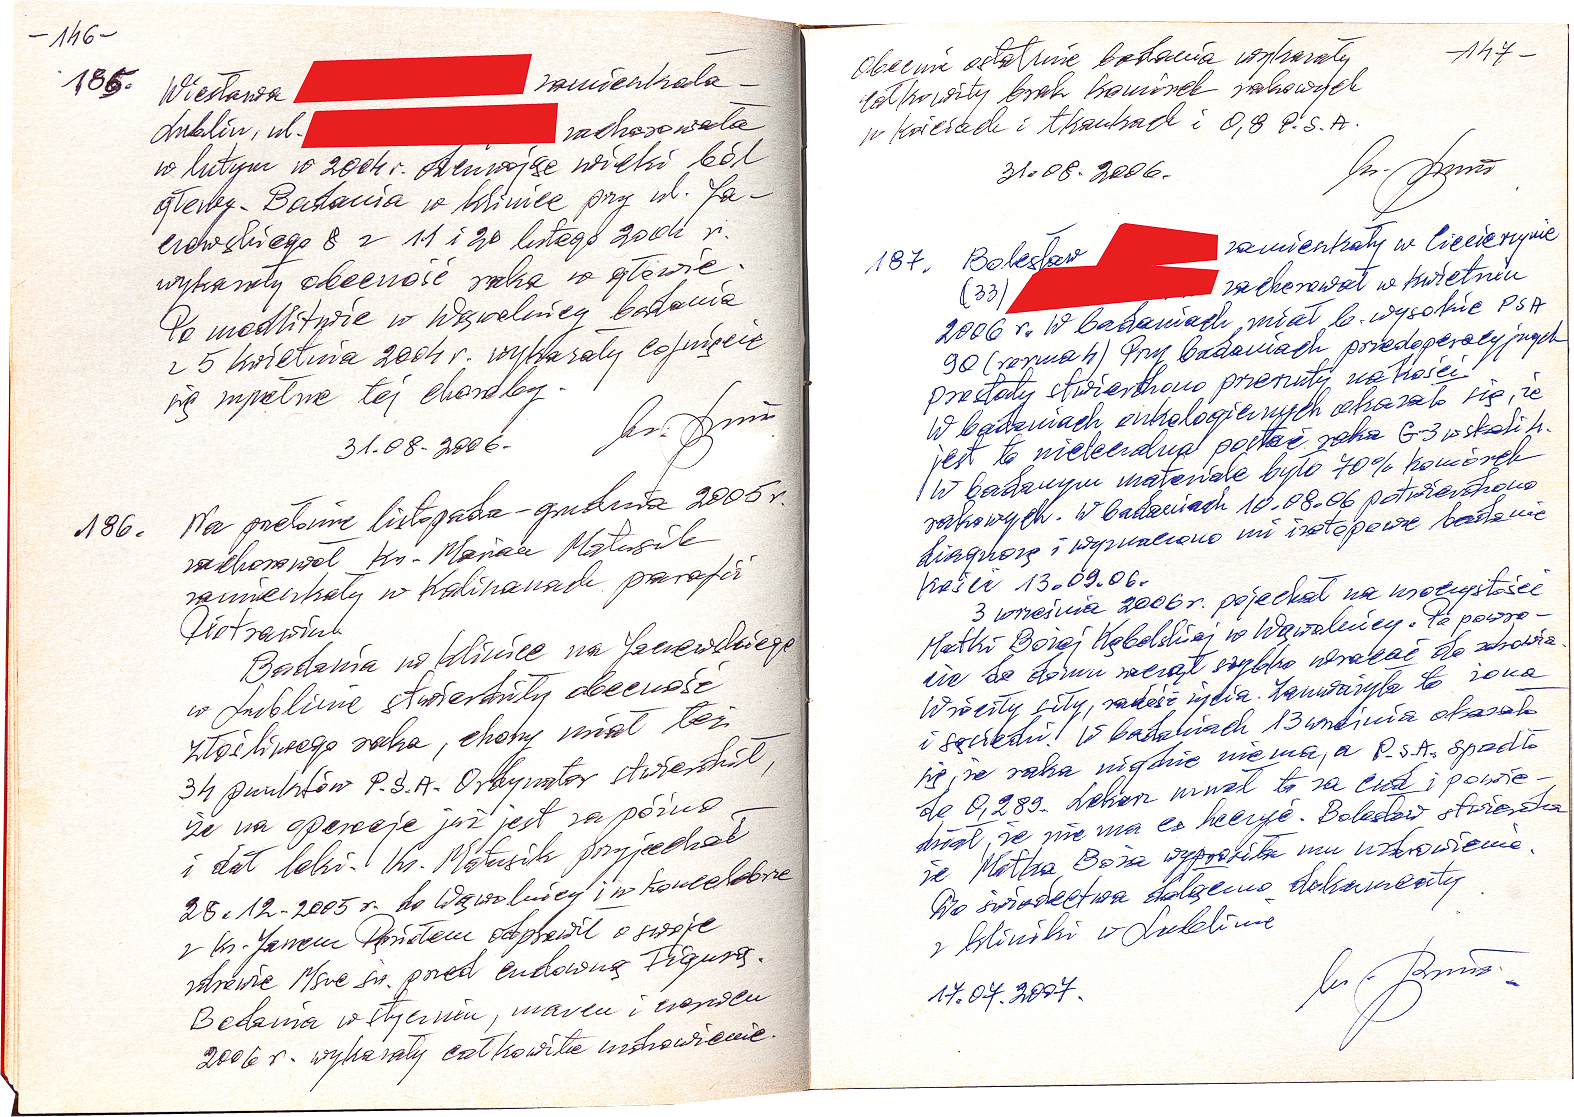 -146-
185. Wiesława zamieszkała -
Lublin, ul. zachorowała
w lutym w 2004 r. odczuwając wielki ból
głowy. Badania w klinice przy ul. Ja-
czewskiego 8 z 11 i 20 lutego 2004 r.
wykazały obecność raka w głowie.
Po modlitwie w Wąwolnicy badania
z 5 kwietnia 2004 r. wykazały cofnięcie
się zupełne tej choroby.
31.08.2006. ks.
186. Na przełomie listopada - grudnia 2005 r.
zachorował ks. Marian Matusik
zamieszkały w Kaliszanach parafii
Piotrawin.
Badania w klinice na Jaczewskiego
w Lublinie stwierdziły obecność
złośliwego raka, chory miał też
34 punktów P.S.A. Ordynator stwierdził,
że na operację już jest za późno
i dał leki. Ks. Matusik przyjechał
28.12.2005 r. do Wąwolnicy i w koncelebrze
z ks. Janem odprawił o swoje
zdrowie Mszę św. przed cudowną Figurą.
Badania w styczniu, marcu i czerwcu
2006 r. wykazały całkowite uzdrowienie.
-147-
Obecnie ostatnie badania wykazały
całkowity brak komórek rakowych
w kościach i tkankach i 0,8 P.S.A.
31.08.2006. ks.
187. Bolesław zamieszkały w Ciecierzynie
(33) zachorował w kwietniu
2006 r. W badaniach miał b. wysokie PSA
90 (norma 4) Przy badaniach przedoperacyjnych
prostaty stwierdzono przerzuty na kości.
W badaniach onkologicznych okazało się, że
jest to nieuleczalna postać raka G-3 w skali 4.
W badanym materiale było 70% komórek
rakowych. W badaniach 10.08.06 potwierdzono
diagnozę i wyznaczono mi izotopowe badanie
kości 13.09.06.
3 września 2006 r. pojechał na uroczystości
Matki Bożej Kębelskiej w Wąwolnicy. Po powro-
cie do domu zaczął szybko wracać do zdrowia.
Wróciły siły, radość życia. Zauważyła to żona
i sąsiedzi. W badaniach 13 września okazało
się, że raka nigdzie nie ma, a P.S.A. spadło
do 0,289. Lekarz uznał to za cud i powie-
dział, że nie ma co leczyć. Bolesław stwierdza
że Matka Boża wyprosiła mu uzdrowienie.
Do świadectwa dołączono dokumenty
z kliniki w Lublinie
17.07.2007. ks.